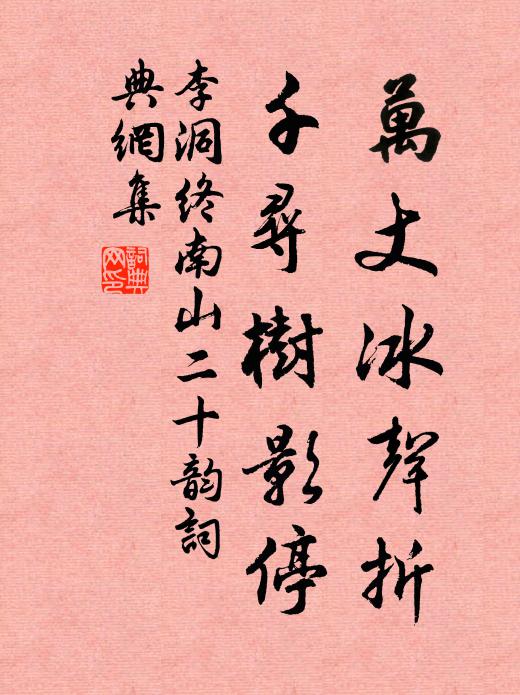 萬丈冰聲折
千尋樹影停
李洞终南山二十韵詞
典網集
詞典
网印